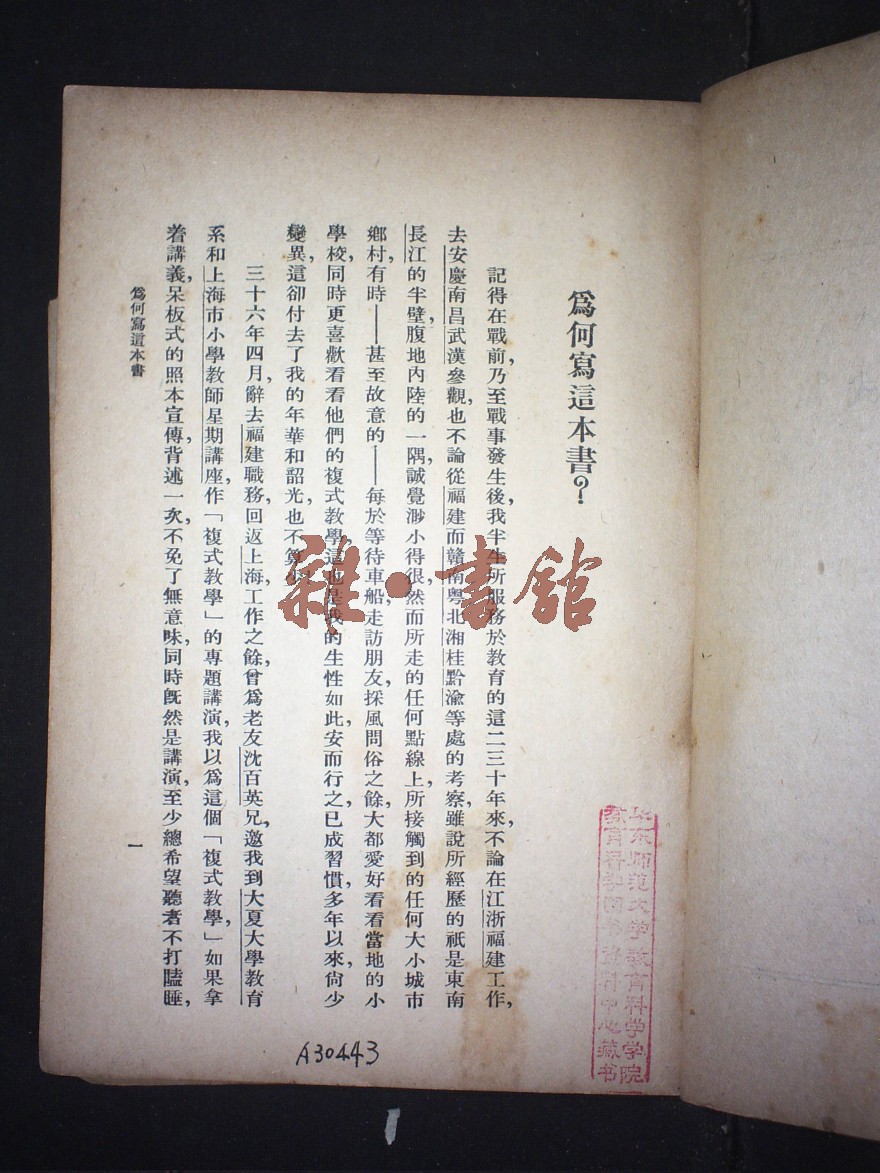 爲何寫這本書?
記得在戰前,乃至戰事發生後,我半生所服務於教育的這二三十年來,不論在江浙福建工作,
去安慶南昌武漢參觀,也不論從福建而贛南粤北湘桂黔渝等處的考察,雖說所經歷的祇是東南
長江的半壁,腹地內陸的一隅,誠覺渺小得很,然而所走的任何點線上,所接觸到的任何大小城市
鄉村,有時——甚至故意的——每於等待車船,走訪朋友,採風問俗之餘,大都愛好看看當地的小
學校,同時更喜歡看看他們的複式教學,這也是我的生性如此,安而行之,已成習慣,多年以來,尙少
變異,這卻付去了我的年華和韶光,也不算少
三十六年四月,辭去福建職務,回返上海,工作之餘,曾爲老友沈百英兄,邀我到大夏大學教育
系和上海市小學教師星期講座,作「複式教學」的專題講演,我以爲這個「複式教學」如果拿
着講義,呆板式的照本宣傳,背述一次,不免了無意味,同時旣然是講演,至少總希望聽者不打瞌睡,
爲何寫這本書
一
雜·書館
华东师范大学教育科学学院
教育科学图书资料中心藏书
A30443